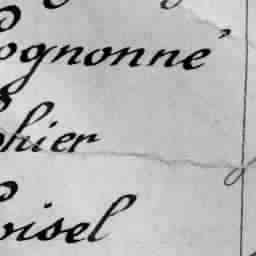 ognonné
hier
oisel